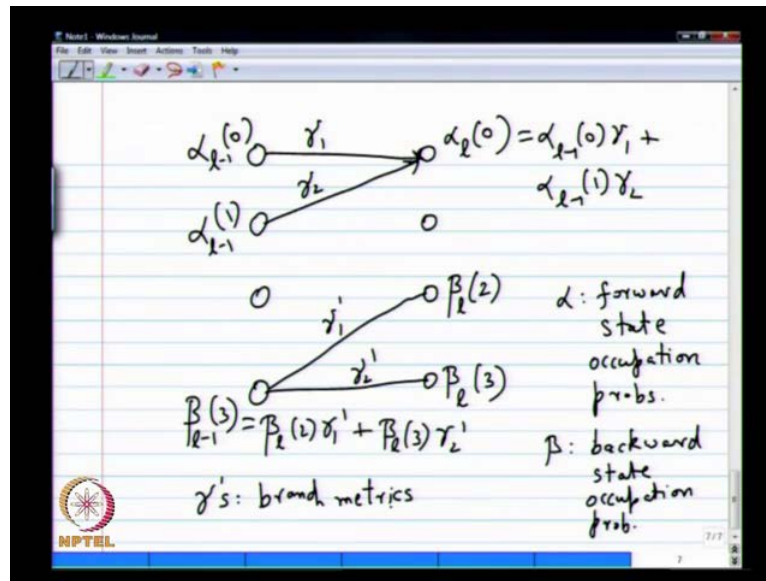 Note1 - Windows Journal
File Edit View Insert Actions Tools Help
α_{l-1}(0) γ_1 α_l(0) = α_{l-1}(0) γ_1 +
γ_2 α_{l-1}(1) γ_2
α_{l-1}(1)
γ_1' β_l(2)
γ_2' β_l(3)
β_{l-1}(3) = β_l(2) γ_1' + β_l(3) γ_2'
γ's: branch metrics
α: forward
state
occupation
probs.
β: backward
state
occupation
prob.
NPTEL
7/7
7